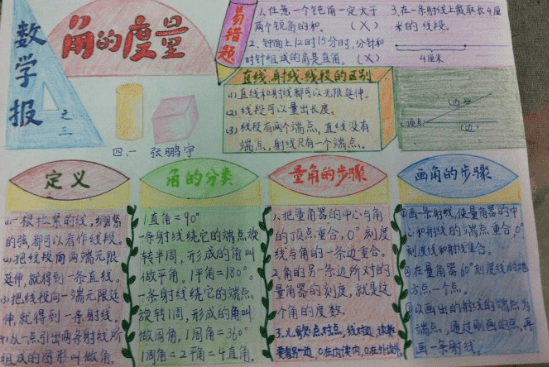 数学报
之三
角的度量
四.一 张鹏宇
易错题
1.任意一个钝角一定大于
两个锐角的和。（×）
2.钟面上12时15分时,分针和
时针组成的角是直角。（×）
3.在一条射线上截取长4厘
米的线段。
4厘米
直线、射线、线段的区别
(1)直线和射线都可以无限延伸。
(2)线段可以量出长度。
(3)线段有两个端点,直线没有
端点,射线只有一个端点。
顶点
(边)
(边)
定义
(1)一根拉紧的线,绷紧
的弦都可以看作线段。
(2)把线段向两端无限
延伸,就得到一条直线。
(3)把线段向一端无限延
伸,就得到一条射线。
(4)从一点引出两条射线所
组成的图形叫做角。
角的分类
1直角=90°
一条射线绕它的端点旋
转半周,形成的角叫
做平角。1平角=180°。
一条射线绕它的端点
旋转1周,形成的角叫
做周角。1周角=360°
1周角=2平角=4直角。
量角的步骤
1.把量角器的中心与角
的顶点重合,0°刻度
线与角的一条边重合。
2.角的另一条边所对的
量角器的刻度,就是这
个角的度数。
画角的步骤
①画一条射线,使量角器的中
心和射线的端点重合,0°
刻度线和射线重合。
点一个点。
③以画出的射线的端点为
端点,通过刚画的点,再
画一条射线。